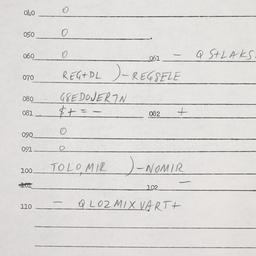 040 0
050 0
060 0 061 - QS+LAKS
070 REG+DL )-REGSELE
080 G8EDOWER7N
081 $+=- 082 +
090 0
091 0
100 TOLO,MIR )-NOMIR
102 -
110 - QLOZMIXVART+